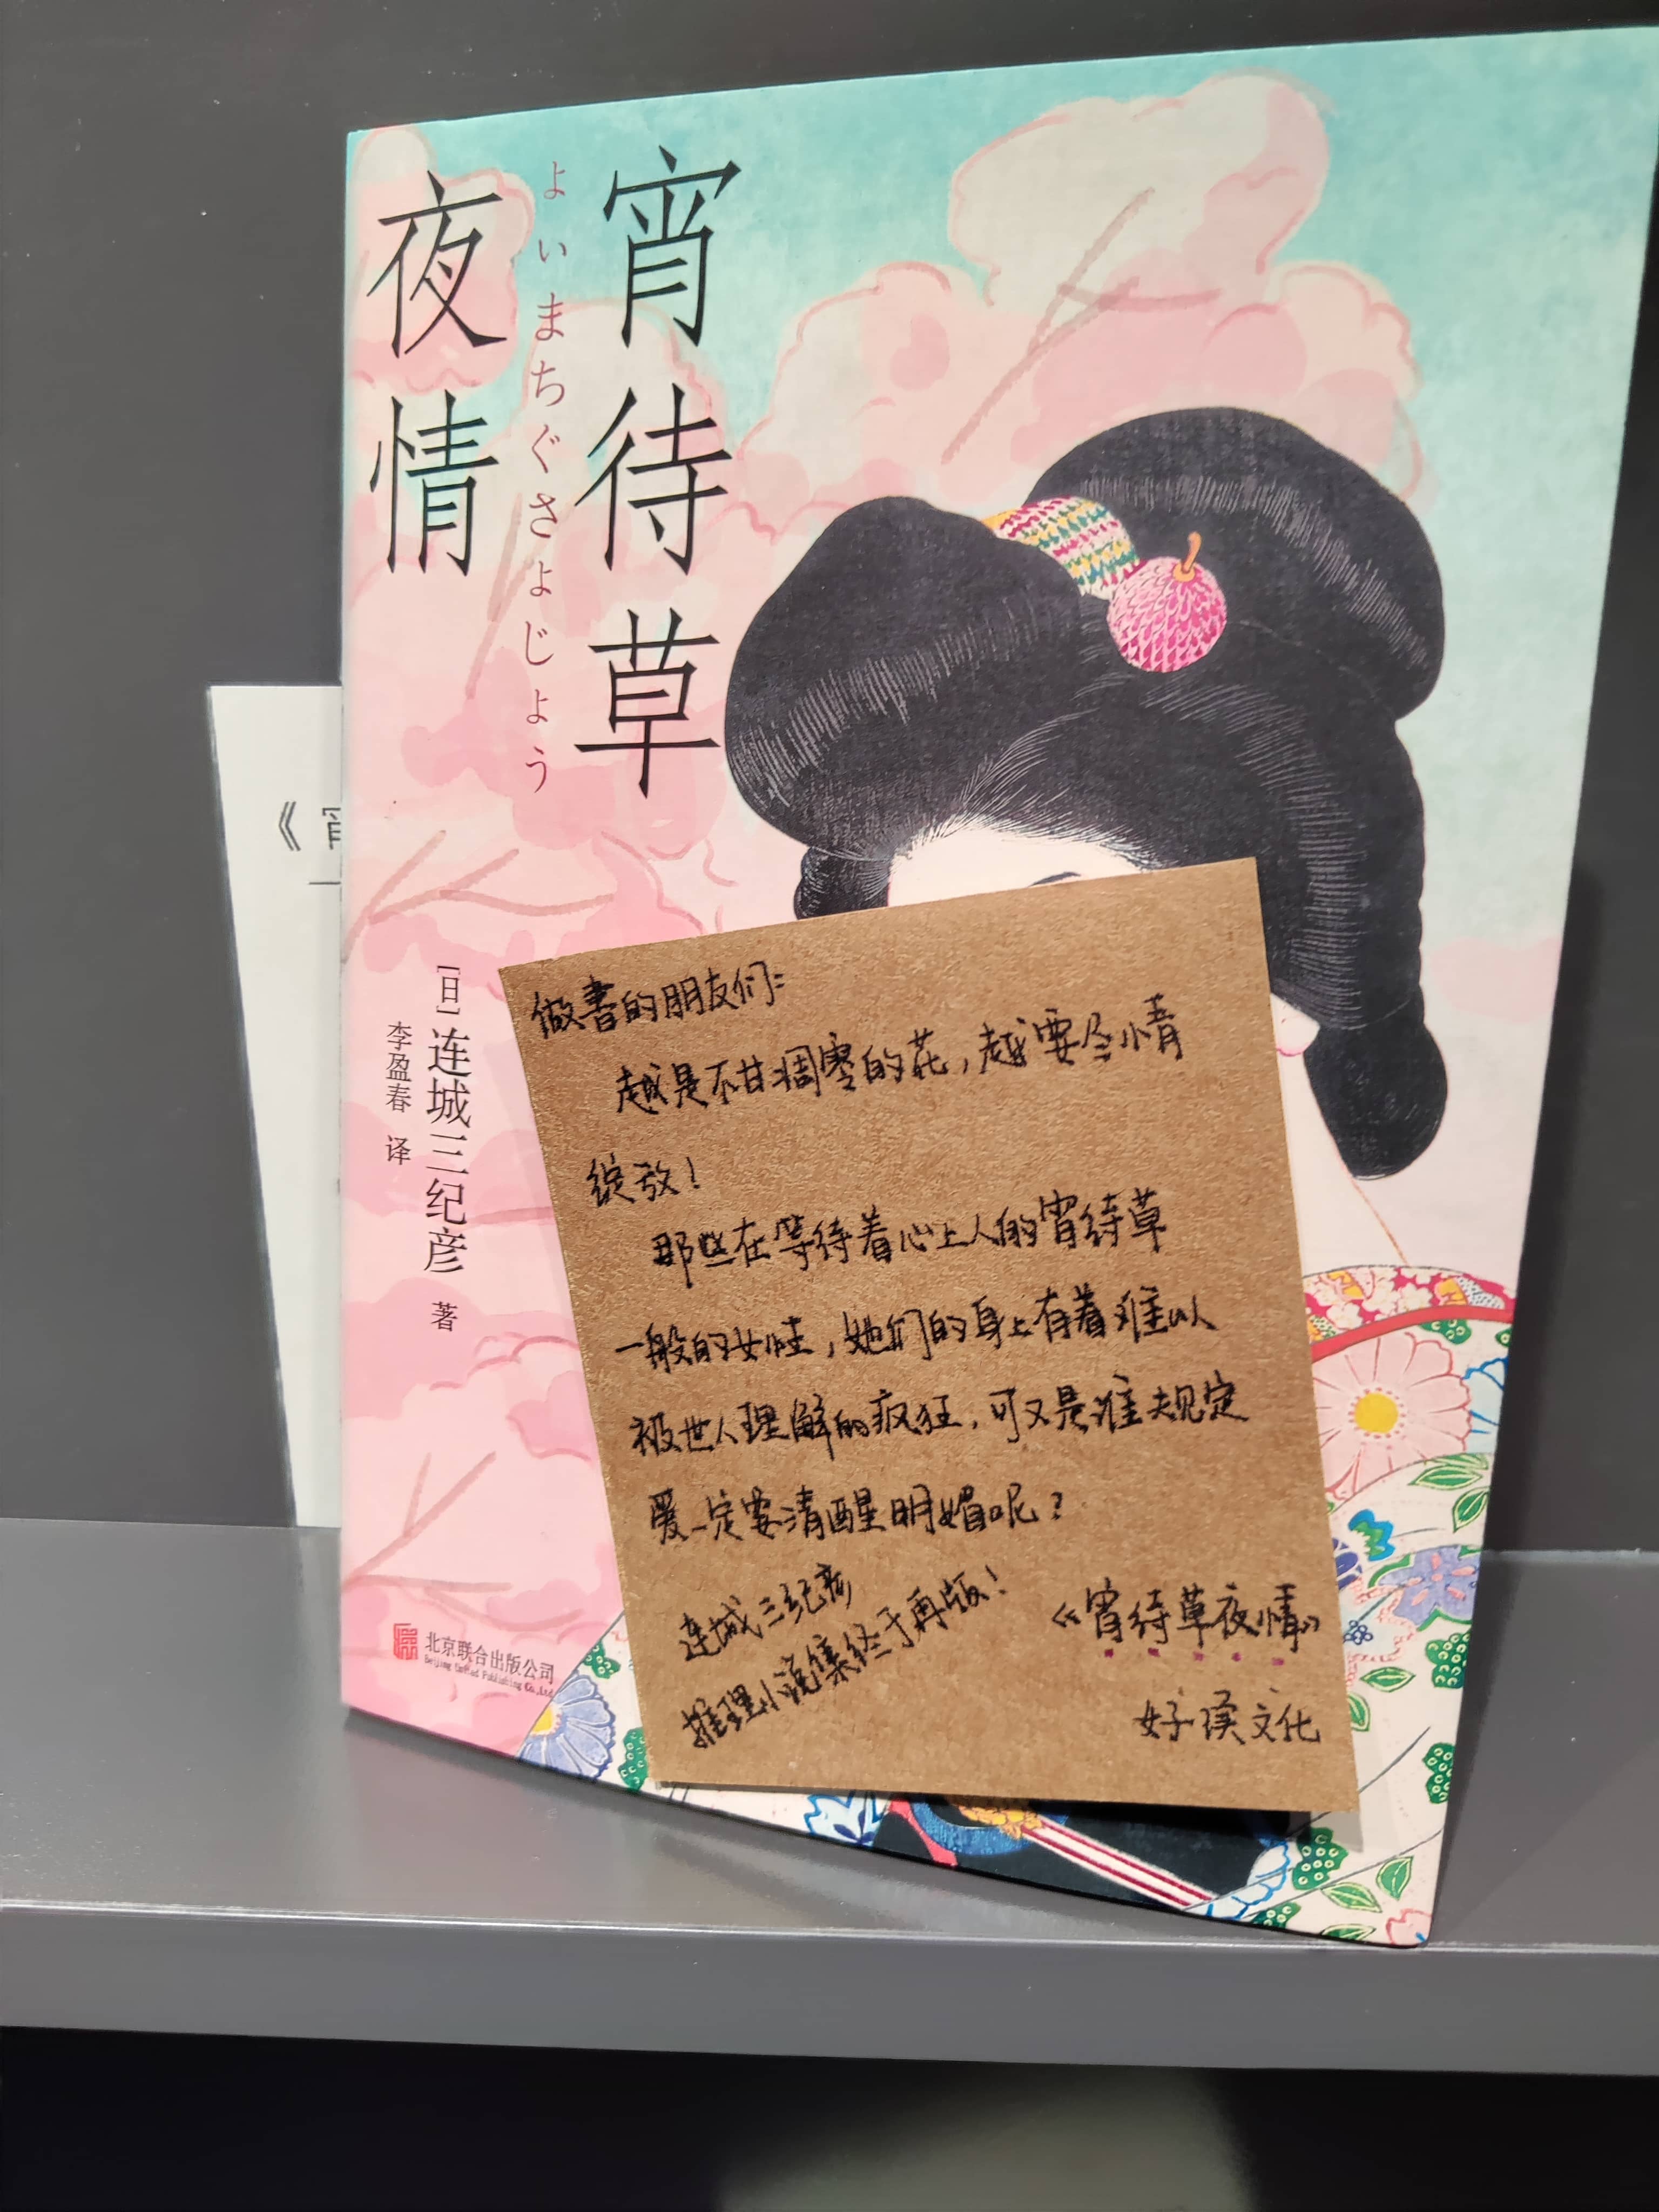 宵待草
よいまちぐさよじょう
夜情
[日]连城三纪彦 著
李盈春 译
北京联合出版公司
Beijing United Publishing Co.,Ltd.
《宵
做書的朋友们：
越是不甘凋零的花，越要尽情
绽放！
那些在等待着心上人的宵待草
一般的女性，她们的身上有着难以
被世人理解的疯狂，可又是谁规定
爱一定要清醒明媚呢？
连城三纪彦
推理小说集终于再版！
《宵待草夜情》
好读文化